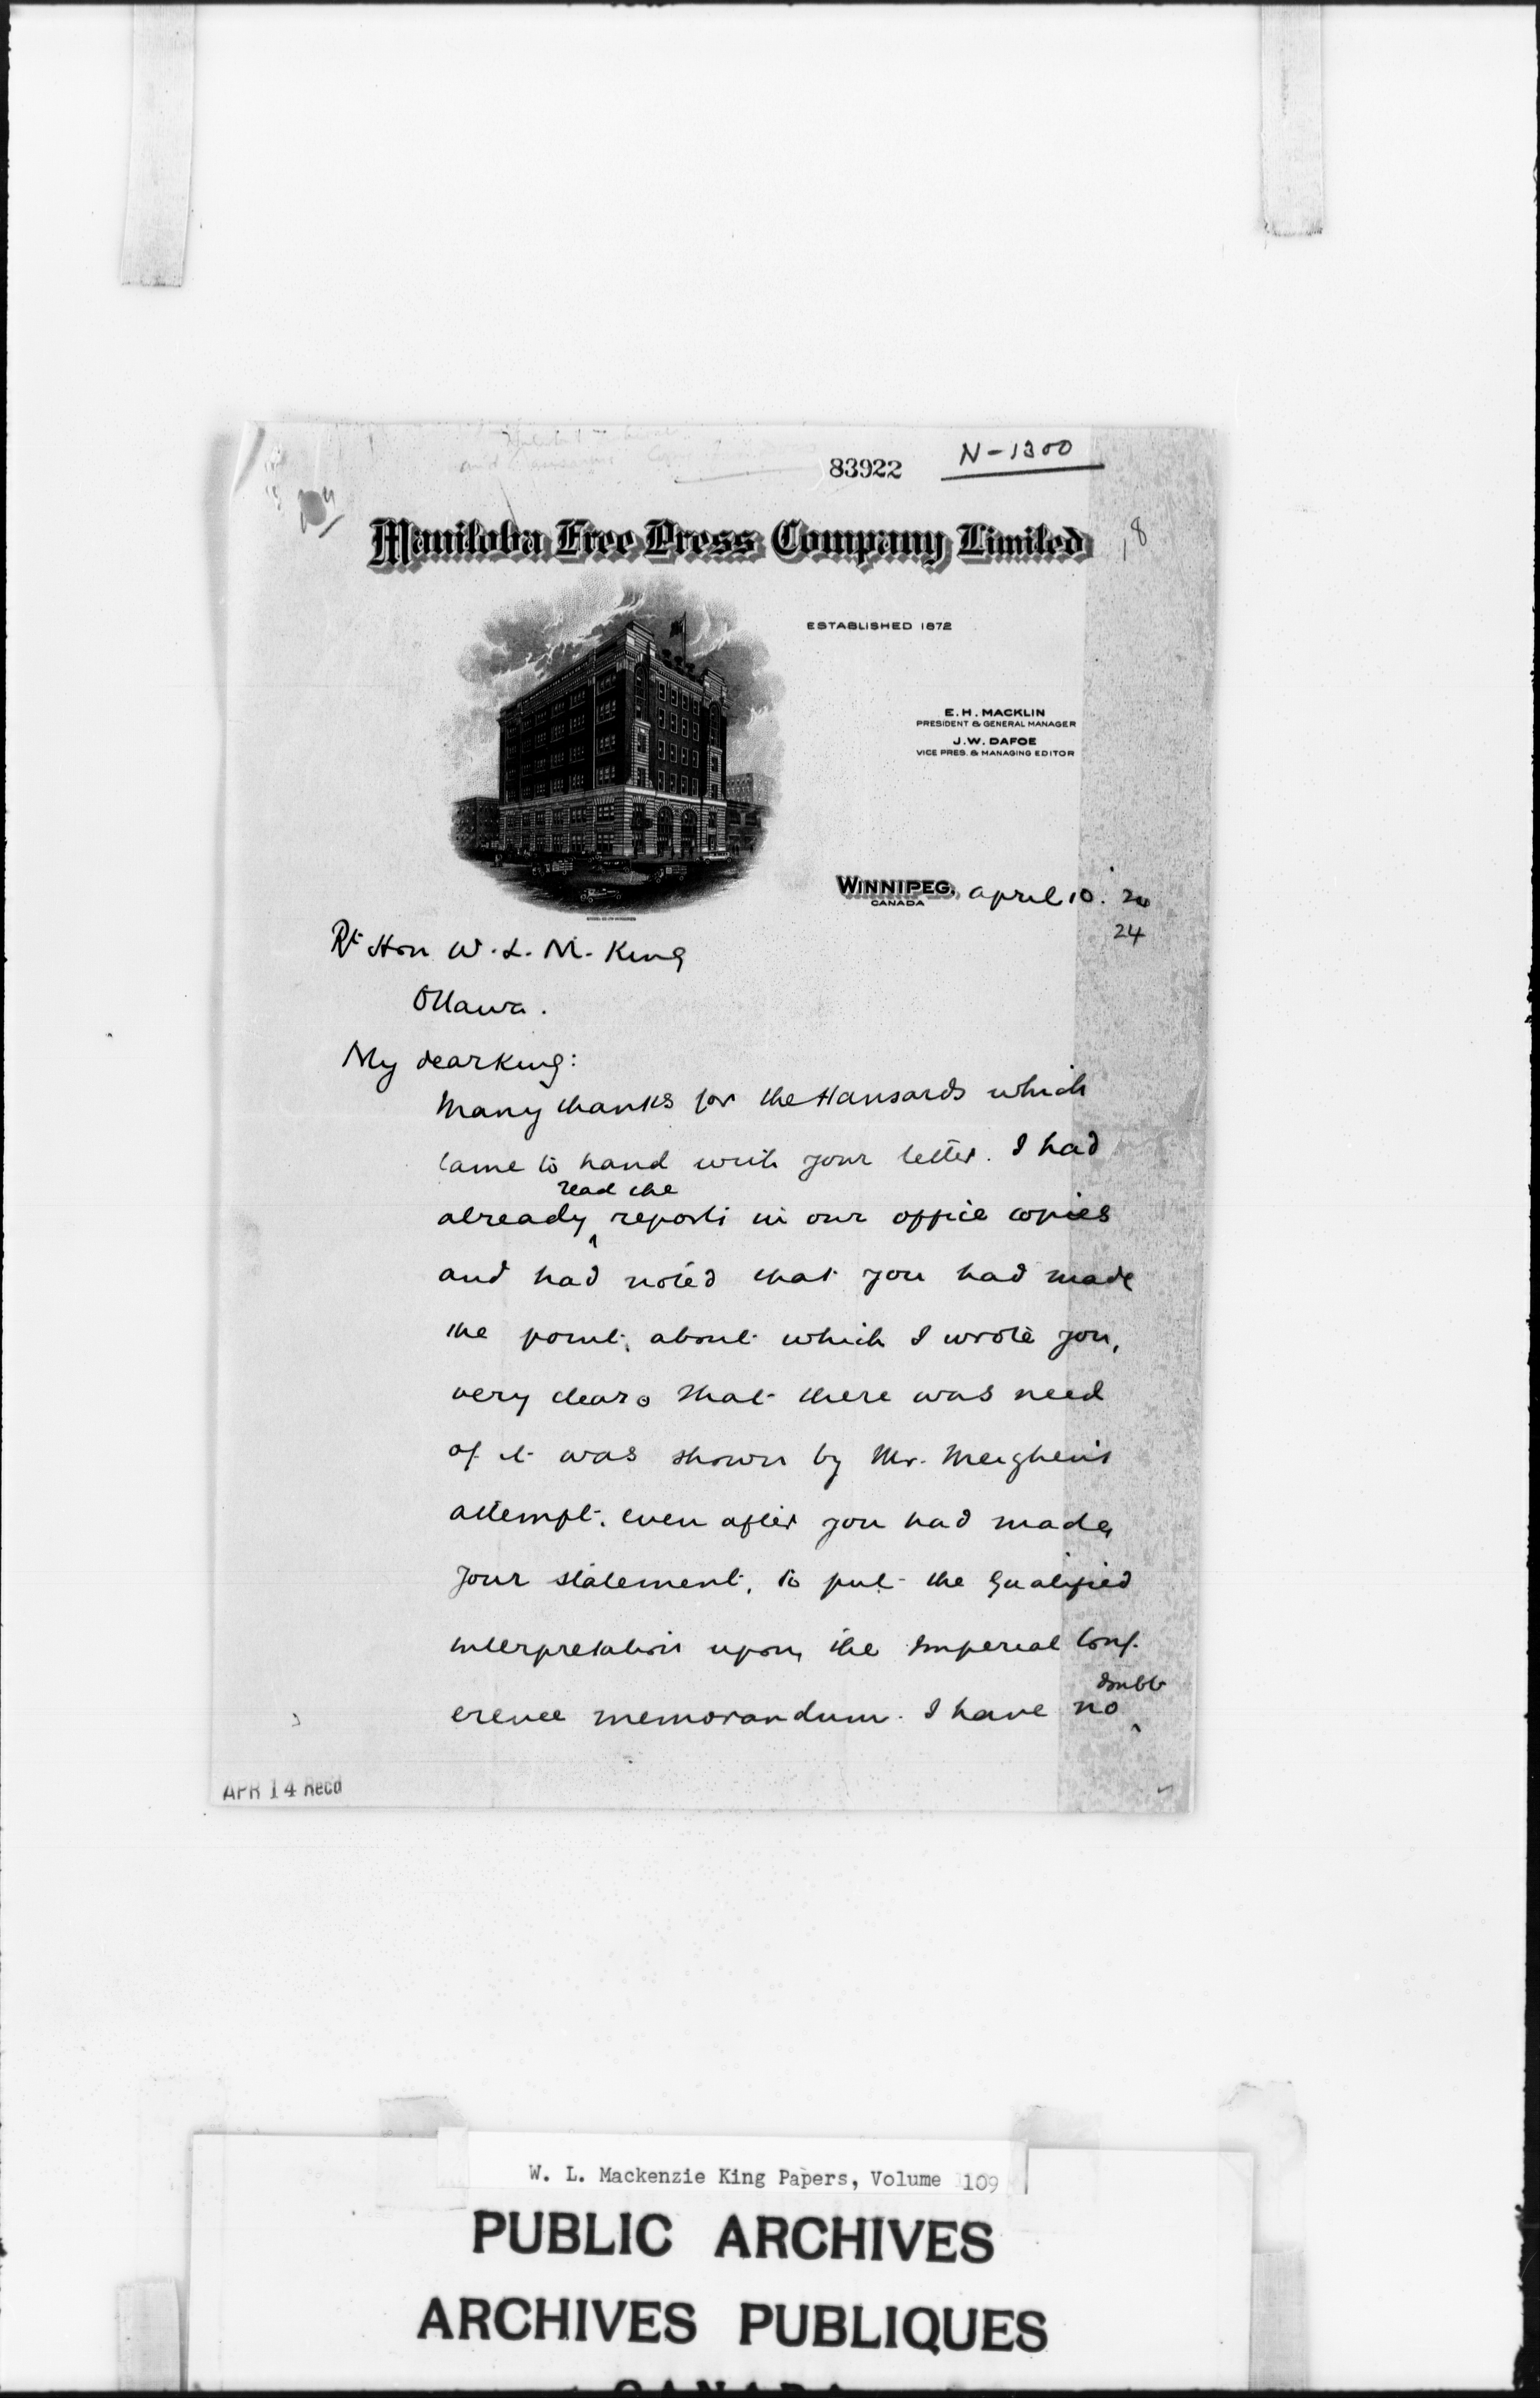 83922
N-1300
Manitoba Free Press Company Limited
18
ESTABLISHED 1872
E.H. MACKLIN
PRESIDENT & GENERAL MANAGER
J.W. DAFOE
VICE PRES. & MANAGING EDITOR
WINNIPEG, April 10. 24
CANADA
24
Rt Hon W. L. M. King
Ottawa.
My dear King:
Many thanks for the Hansards which
came to hand with your letter. I had
read the
already ^ reports in our office copies
and had noted that you had made
the point, about which I wrote you,
very clear. That there was need
of it was shown by Mr. Meighen's
attempt, even after you had made
your statement, to put the qualified
interpretation upon the Imperial Conf-
doubt
erence memorandum. I have no ^
APR 14 Recd
W. L. Mackenzie King Papers, Volume 109
PUBLIC ARCHIVES
ARCHIVES PUBLIQUES
CANADA